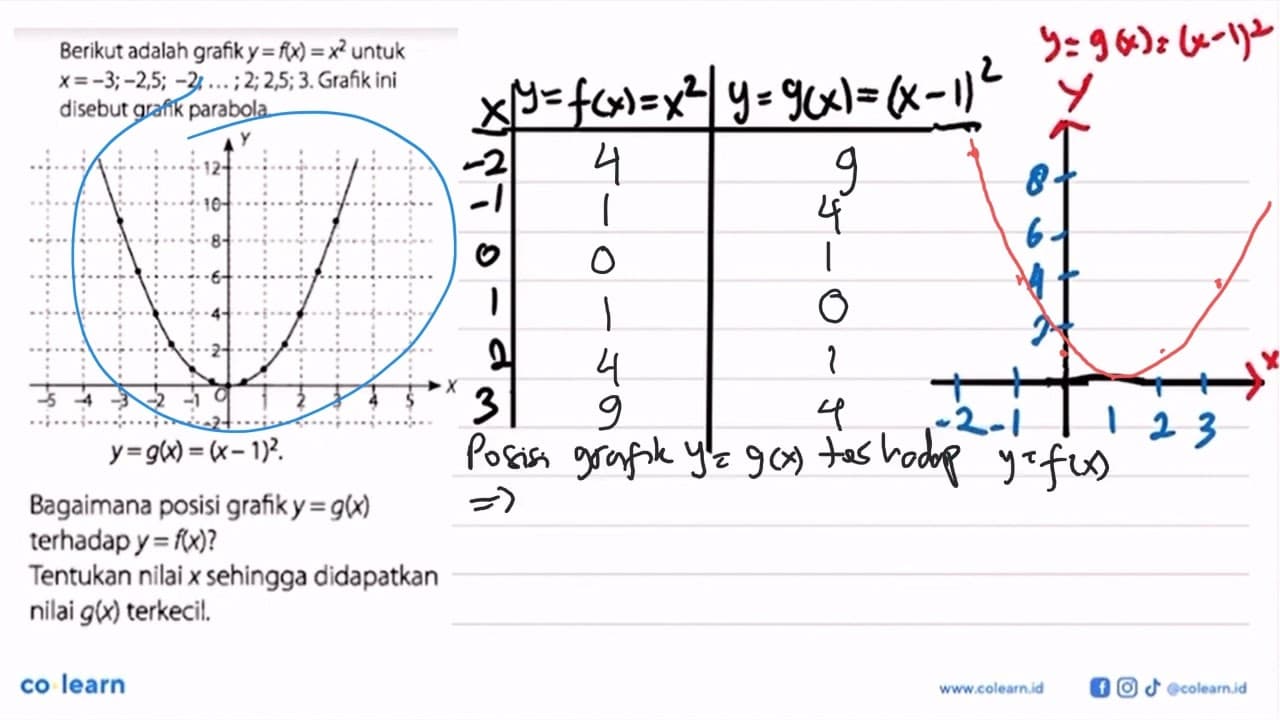 Berikut adalah grafik y = f(x) = x² untuk
x = –3; –2,5; –2; ... ; 2; 2,5; 3. Grafik ini
disebut grafik parabola.
Y
12
10
8
6
4
2
-5 -4 -3 -2 -1 O 1 2 3 4 5 X
-2
y = g(x) = (x – 1)².
Bagaimana posisi grafik y = g(x)
terhadap y = f(x)?
Tentukan nilai x sehingga didapatkan
nilai g(x) terkecil.
x y = f(x) = x² y = g(x) = (x-1)²
-2 4 9
-1 1 4
0 0 1
1 1 0
2 4 1
3 9 4
Posisi grafik y = g(x) terhadap y = f(x)
=>
y = g(x) = (x-1)²
Y
8
6
4
2
x
-2 -1 1 2 3
co learn
www.colearn.id @colearn.id